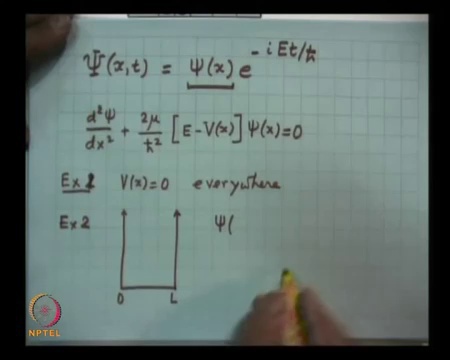 Ψ(x,t) = ψ(x) e^{-iEt/ħ}
d²ψ/dx² + 2μ/ħ² [E-V(x)] ψ(x)=0
Ex 1 V(x)=0 everywhere
Ex 2 ψ(
0 L
NPTEL